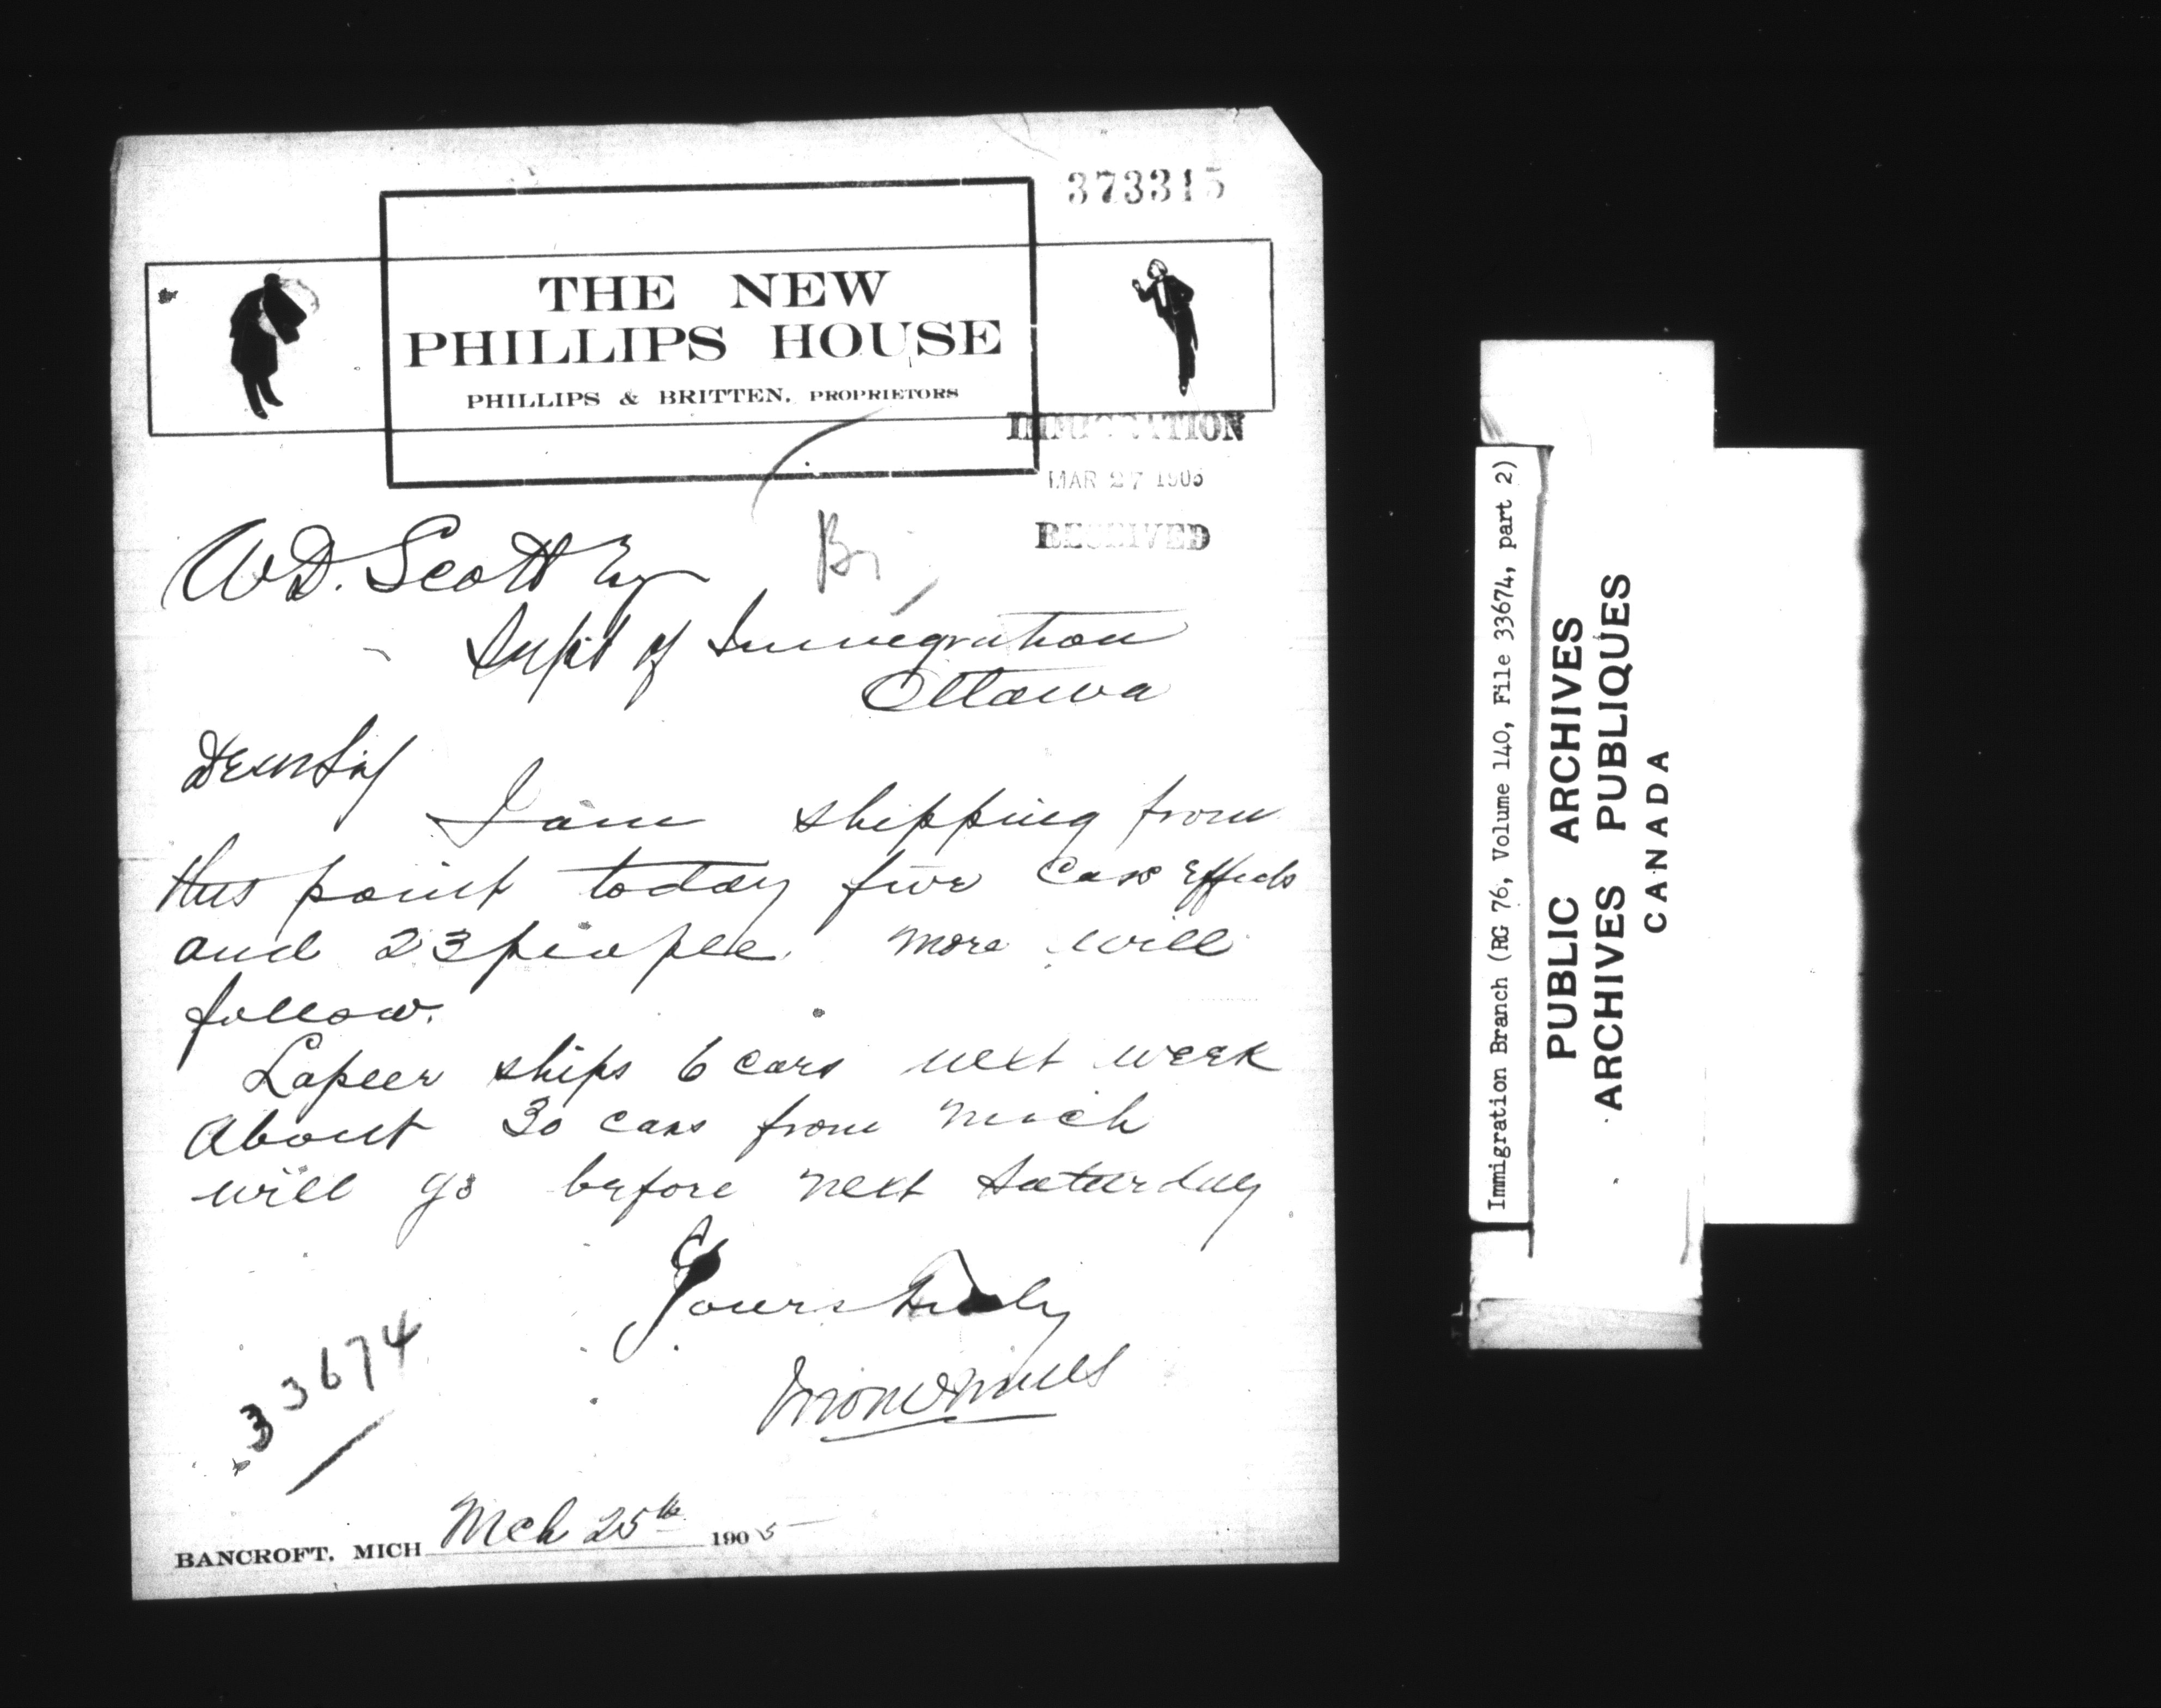 373315
THE NEW
PHILLIPS HOUSE
PHILLIPS & BRITTEN, PROPRIETORS
IMMIGRATION
MAR 27 1905
RECEIVED
W.D. Scott Esq
Supt of Immigration
Ottawa
Dear Sir
I am shipping from
this point today five Cars Effects
and 23 people. more will
follow.
Lapeer ships 6 cars next week
About 30 cars from Mich
will go before next Saturday
Yours truly
33674
BANCROFT, MICH Mch 25th 1905
Immigration Branch (RG 76, Volume 140, File 33674, part 2)
PUBLIC ARCHIVES
ARCHIVES PUBLIQUES
CANADA